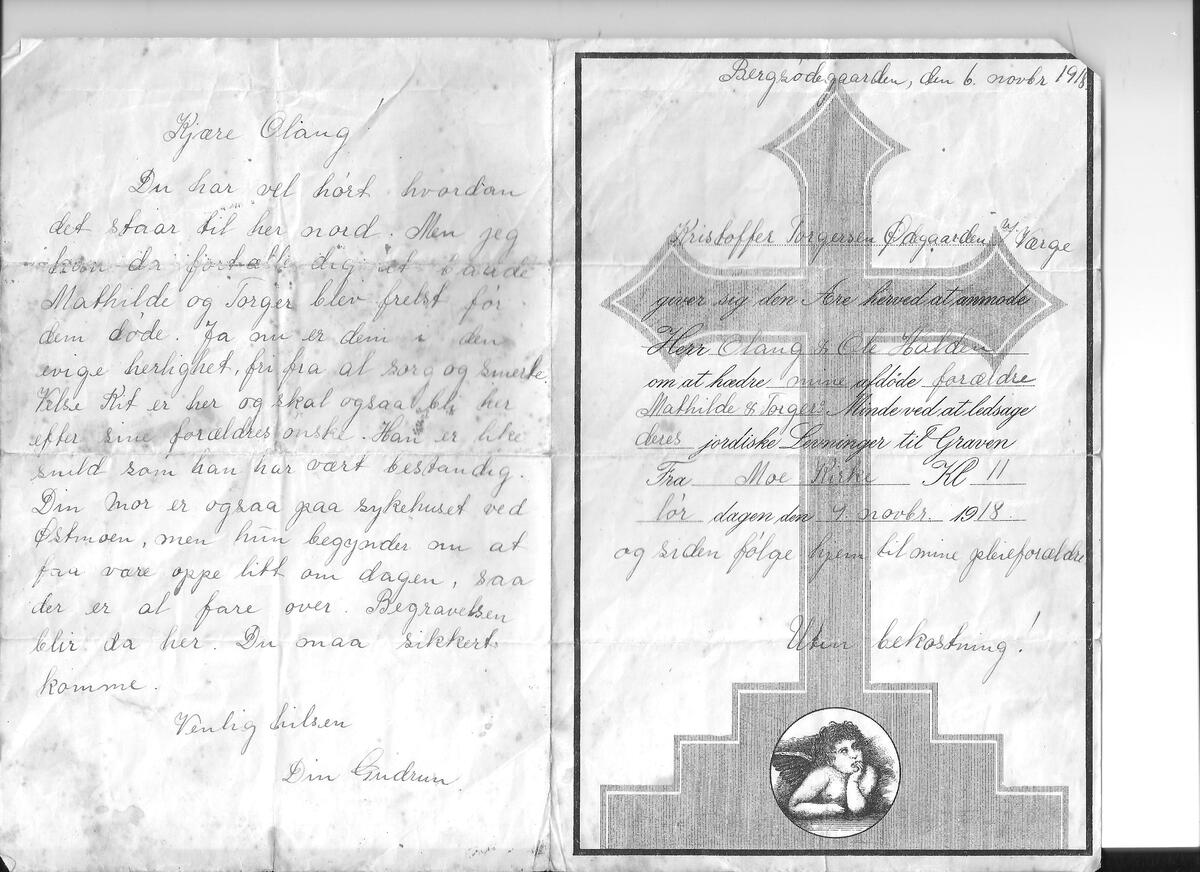 Kjære Olaug!
Du har vel hørt hvordan
det staar til her nord. Men jeg
kan da fortælle dig at baade
Mathilde og Torger blev frelst før
dem døde. Ja nu er dem i den
evige herlighet, fri fra al sorg og smerte.
er her og skal ogsaa bli her
efter sine forældres ønske. Han er like
snild som han har vært bestandig.
Din mor er ogsaa paa sykehuset ved
Østmoen, men hun begynder nu at
faa være oppe litt om dagen, saa
der er al fare over. Begravelsen
blir da her. Du maa sikkert
komme.
Venlig hilsen
Din Gudrun.
Bergsødegaarden, den 6. novbr 1918.
Kristoffer Torgersen Ødegaarden Værge
giver sig den Ære herved at anmode
Herr Olaug & Ole Halden
om at hædre mine afdøde forældre
Mathilde & Torgers Minde ved at ledsage
deres jordiske Levninger til Graven
Fra Moe Kirke Kl 11
lør dagen den 9. novbr. 1918.
og siden følge hjem til mine pleieforældre
Uten bekostning!